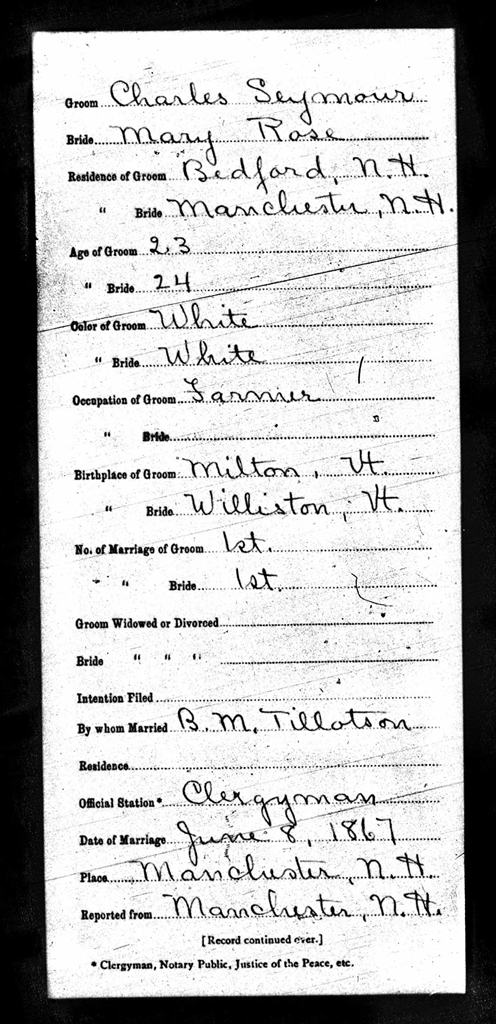 Groom Charles Seymour
Bride Mary Rose
Residence of Groom Bedford, N.H.
" Bride Manchester, N.H.
Age of Groom 23
" Bride 24
Color of Groom White
" Bride White
Occupation of Groom Farmer
" Bride
Birthplace of Groom Milton, Vt.
" Bride Williston, Vt.
No. of Marriage of Groom 1st.
" " Bride 1st.
Groom Widowed or Divorced
Bride " " "
Intention Filed
By whom Married B. M. Tillotson
Residence
Official Station* Clergyman
Date of Marriage June 8, 1867
Place Manchester, N.H.
Reported from Manchester, N.H.
[Record continued over.]
* Clergyman, Notary Public, Justice of the Peace, etc.